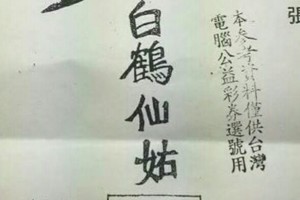 張
本參考資料僅供台灣
電腦公益彩券選號用
白鶴仙姑